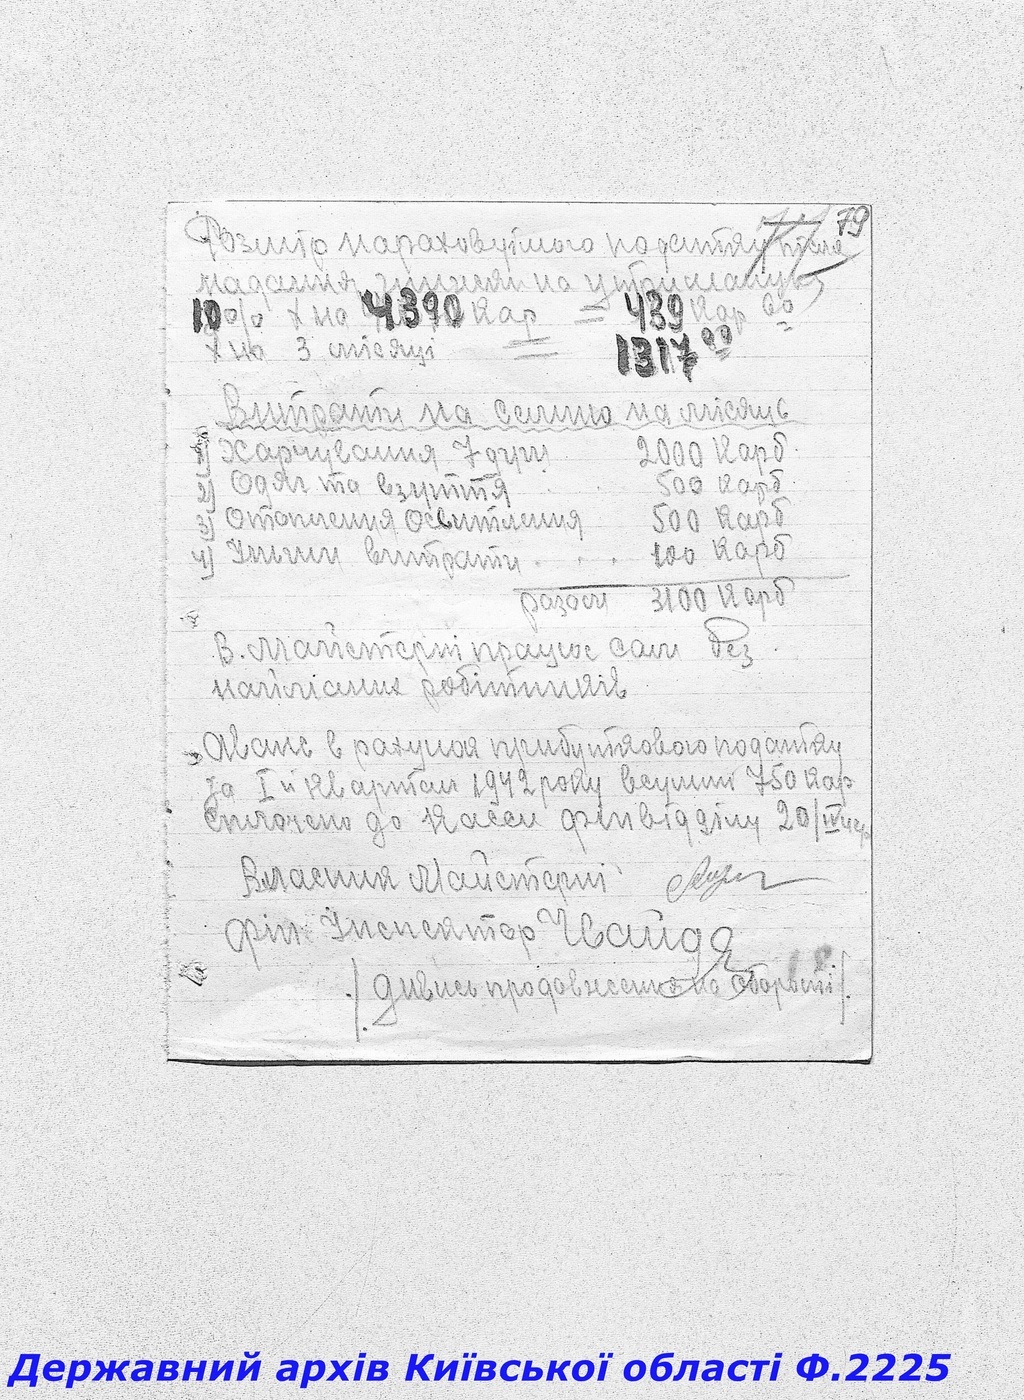 79
Розмір нараховуємого податку після
надання знижки на утриманців
10% х на 4390 Кар = 439 Кар 00
х на 3 місяці = 1317 00
Витрати на семню на місяць
1) Харчування 7 душ 2000 Карб
2) Одяг та взуття . . 500 Карб
3) Отоплення Освитлення 500 Карб
4) Іньши витрати . . . 100 Карб
разом 3100 Карб
В. Майстерні працює сам без
найманих робітників
Аванс в рахунок прибуткового податку
за I й Квартал 1942 року всумі 750 Кар
сплочено до Касси фінвідділу 20/IV
Власник Майстерні
фін Інспектор
/ дивись продовження на обороті /
Державний архів Київської області Ф.2225